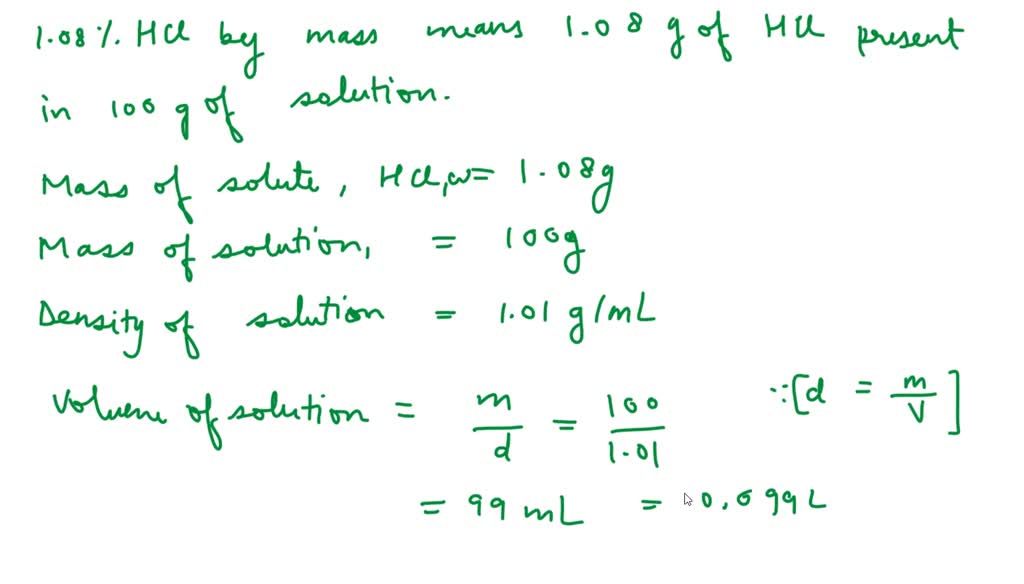 1.08% HCl by mass means 1.08 g of HCl present
in 100 g of solution.
Mass of solute, HCl, w = 1.08g
Mass of solution, = 100g
Density of solution = 1.01 g/mL
Volume of solution = m/d = 100/1.01 ∵ [d = m/V]
= 99 mL = 0.099 L